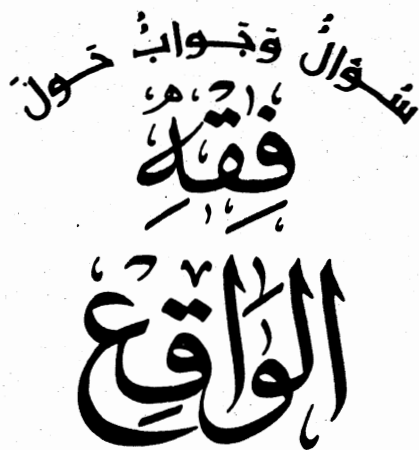 سُؤَالٌ وَجَوابٌ حَولَ
فِقْهِ
الوَاقِعِ